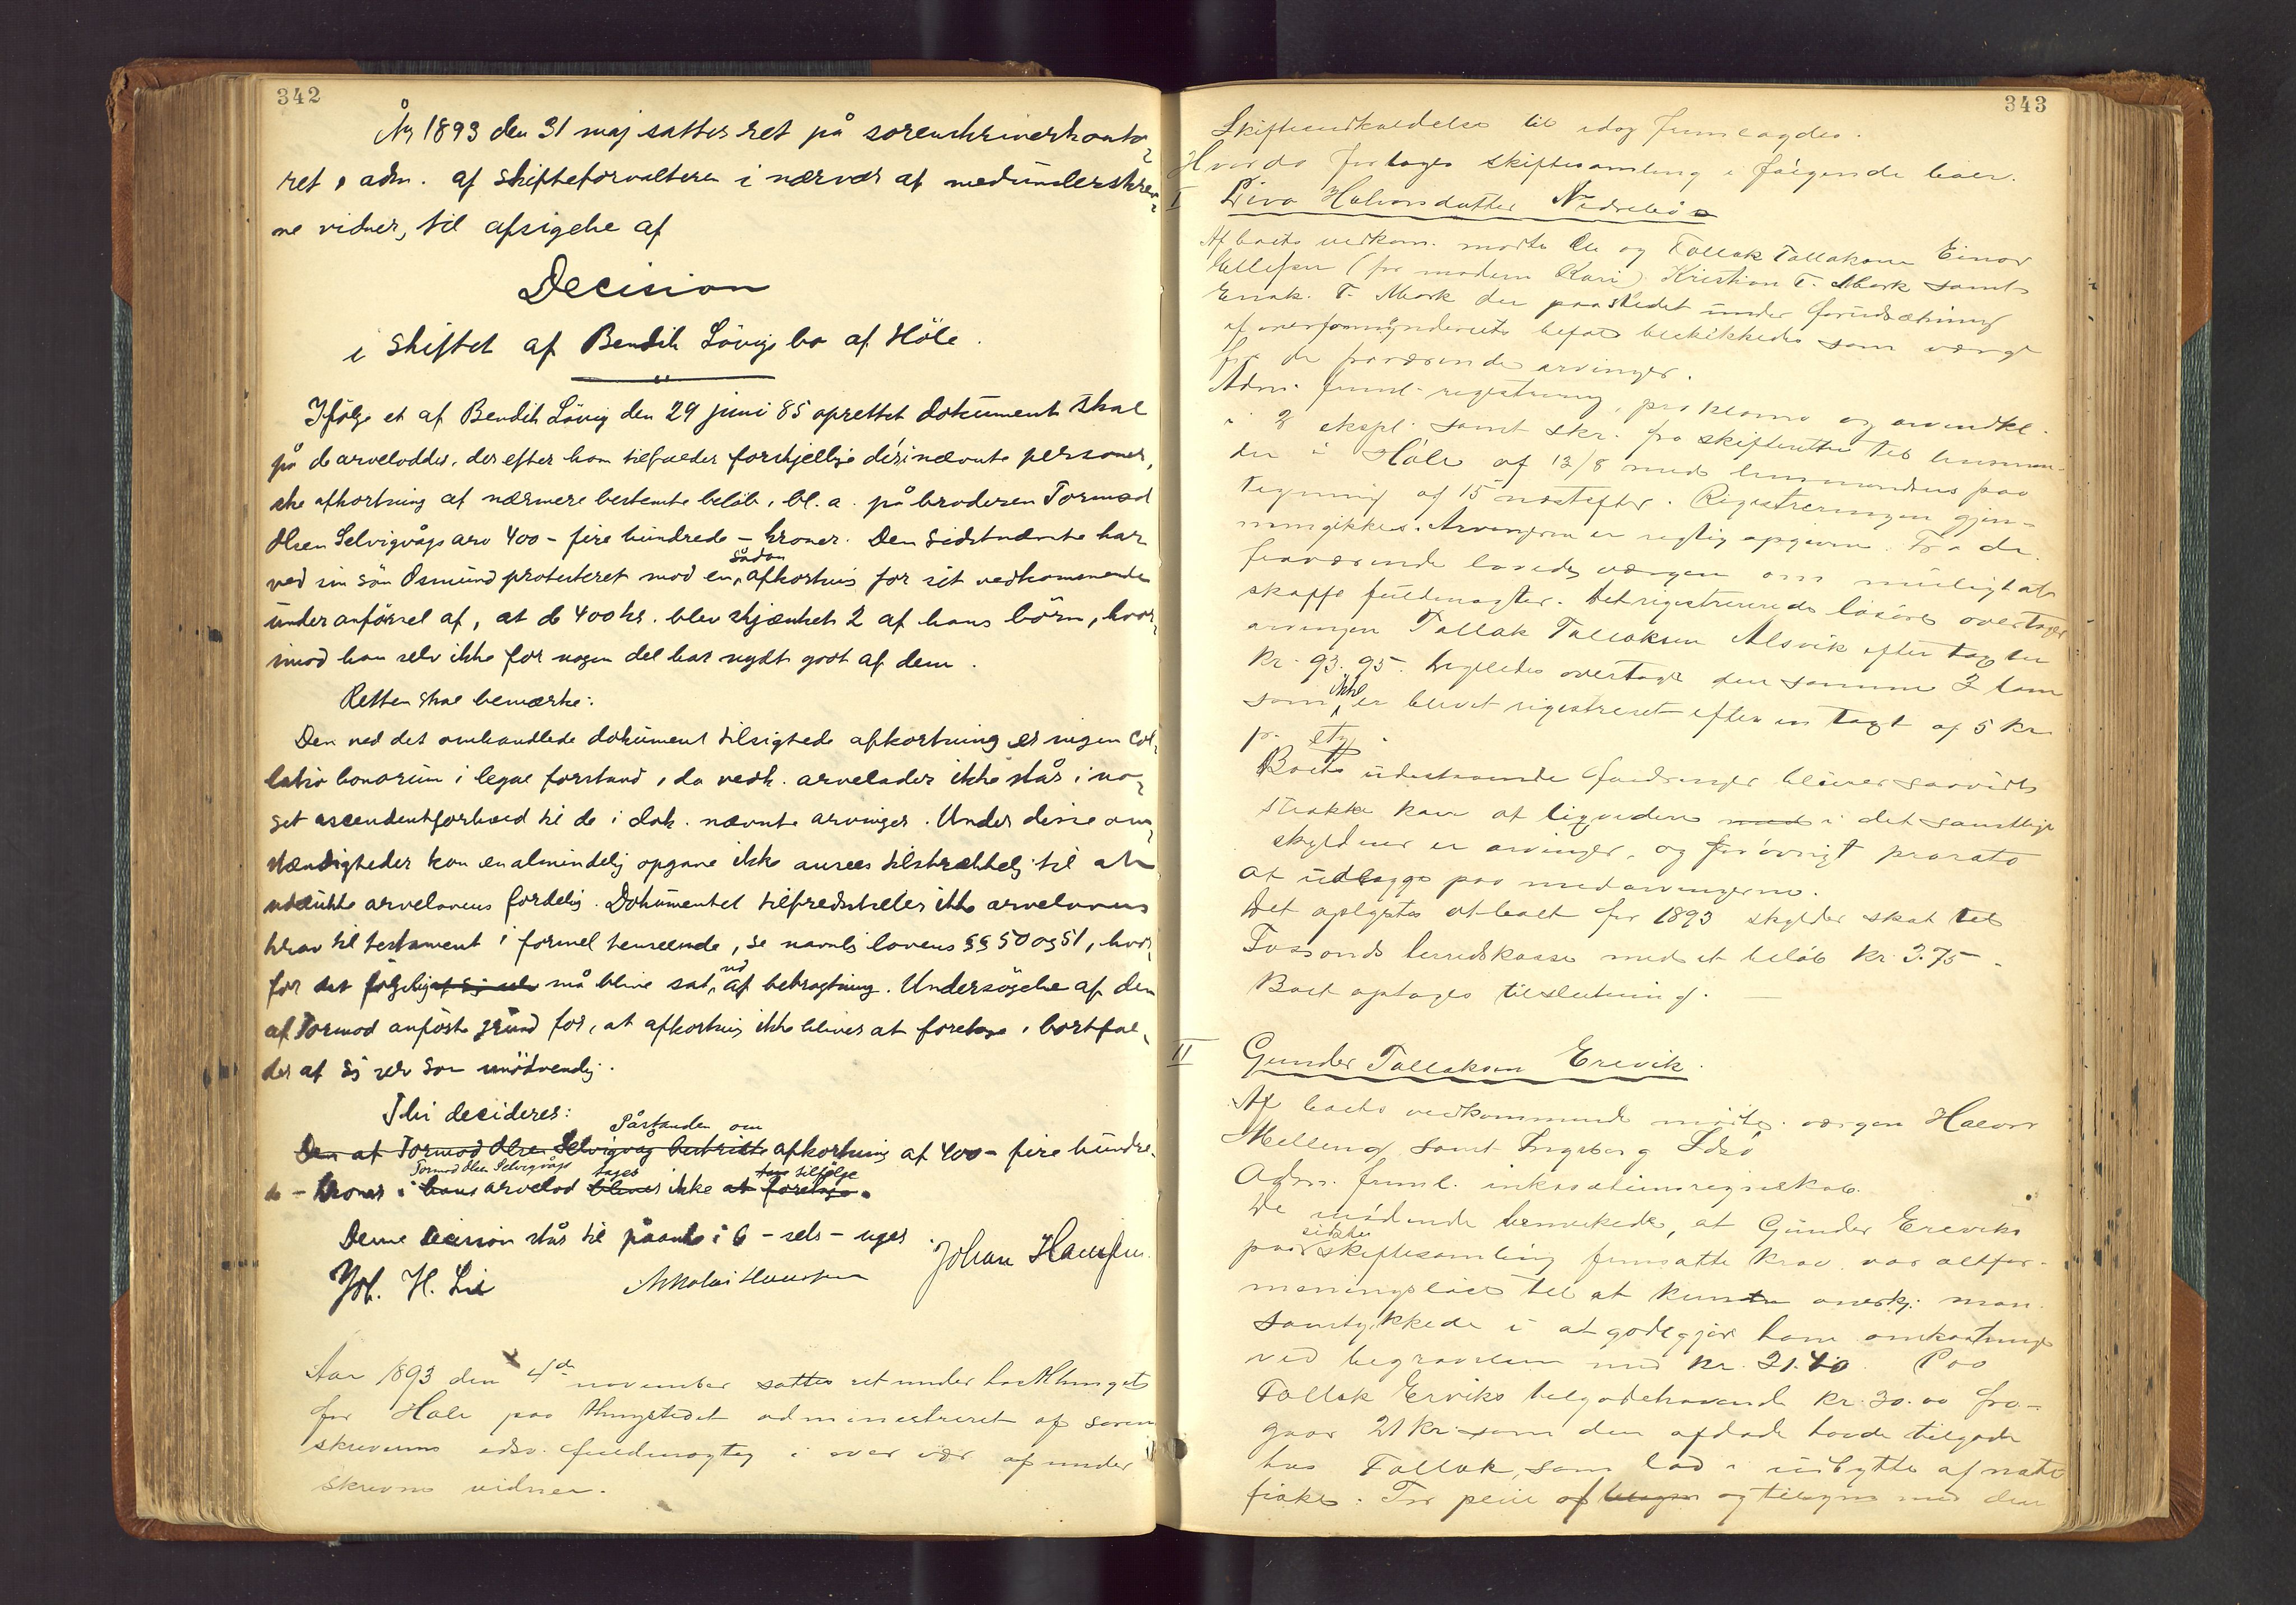 342
År 1893 den 31 maj sattes ret på sorenskriverkonto-
ret, adm. af skifteforvalteren i nærvær af medunderskrev-
ne vidner, til afsigelse af
Decision
i skiftet af Bendik Lövigs bo af Höle.
Ifölge et af Bendik Lövig den 29 juni 85 oprettet dokument skal
på de arvelodder, der efter ham tilfalder forskjellige deri nævnte personer,
ske afkortning af nærmere bestemte beløb, bl. a. på broderen Tormod
Olsen Selvigvågs arv 400 - fire hundrede - kroner. Den sidstnævnte har
ved sin sön Osmund protesteret mod en sådan afkortnig for sit vedkommende
under anförsel af, at de 400 kr. blev skjænket 2 af hans börn, hvor-
imod han selv ikke for nogen del har nydt godt af dem.
Retten skal bemærke:
Den ved det omhandlede dokument tilsigtede afkortning er ingen col-
latio bonorum i legal forstand, da vedk. arvelader ikke står i no-
get ascendentforhold til de i dok. nævnte arvinger. Under disse om-
stændigheder kan en almindelig opgave ikke ansees tilstrækkelig til at
udelukke arvelovens fordelig. Dokumentet tilfredsstiller ikke arvelovens
krav til testament i formel henseende, se navnlig lovens §§ 50 og 51, hvor-
for det følgelig af sig selv må blive sat ud af betragtning. Undersögelse af den
af Tormod anförte grund for, at afkortnig ikke bliver at foretage, bortfal-
der af sig selv som unödvendig.
Thi decideres:
Påstanden om
Den af Tormod Olsen Selvigvåg bestridte afkortning af 400 - fire hundre-
Tormod Olsen Selvigvågs tages tilfölge
de - kroner i hans arvelod bliver ikke at foretage.
Denne decision står til påanke i 6 - seks - uger.
Joh. H. Lie Nikolai Johan Hansen
Aar 1893 den 4de november sattes ret under hosttinget
for Høle paa thingstedet administreret af soren-
skriverens edsv. fuldmægtig i over vær af under
skrevne vidner.
343
Skifteindkaldelse til idag fremlagdes.
Hvorda foretages skiftesamling i følgende boer.
I Siva Halvorsdatter Nedrebø
Af boets vedkom. mødte Ole og Tollak Tollaksen Einar
Ellefsen (for modern Kari) Kristian T. Mark samt
Enok T. Mark der paa stedet under forudsætning
af overformynderiets befal beskikkedes som værge
for de fraværende arvinger.
Adm. freml. registrering, proklama og arveindkl.
i 2 expl. samt skr. fra skifteretten til lensman-
den i Høle af 12/8 med lensmandens paa
tegning af 15 næstefter. Registreringen gjen-
nemgikkes. Arvingerne er rigtig opgivne. Fra de
fraværende lovede værgen om muligt at
skaffe fuldmagter. Det registrerede løsøre overtager
arvingen Tollak Tollaksen Alsvik efter taxten
kr. 93.95. Ligeledes overtage den samme 2 lam
som ikke er blevet registreret efter en taxt af 5 kr
pr. stk.
Boets udestaaende fordringer bliver saavidt
strække kan at liqvidere med i det samtlige
skyldner er arvinger, og forøvrigt prorata
at udlægge paa medarvingerne.
Det oplystes at boet for 1893 skylder skat til
Fossands herredskasse med et beløb kr. 3.75.
Boet optages til slutning.
II Gunder Tollaksen Erevik.
Af boets vedkommende mødte værgen Halvor
Melling samt Ingeborg Idsø
Adm. freml. inkassationsregnskab.
De mødende bemærkede, at Gunder Ereviks
paa sidste skiftesamling fremsatte krav var altfor
meningsløst til at kunne anerkj. man
samtykkede i at godtgjøre ham omkostninger
ved begravelsen med kr. 21.40. Paa
Tollak Erviks tilgodehavende kr. 30.00 fra-
gaar 21 kr. som den afdøde havde tilgode
hos Tollak, som lod i udbytte af nate
fisket. For pleie af og tilsyn med den